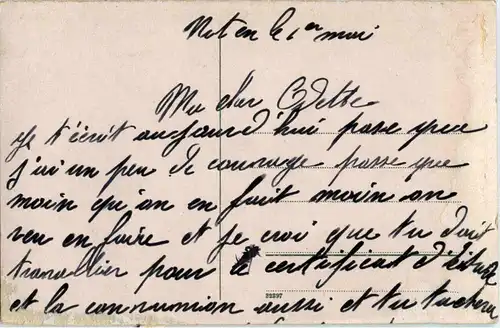 le 1er mai
Ma cher Odette
Je t'écrit aujourd'hui pasce que
j'ai un peu de courage passe que
moin qu'on en fait moin on
veu en faire et je croi que tu doit
travallier pour le certificat d'étude
et la communion aussi et tu tachera